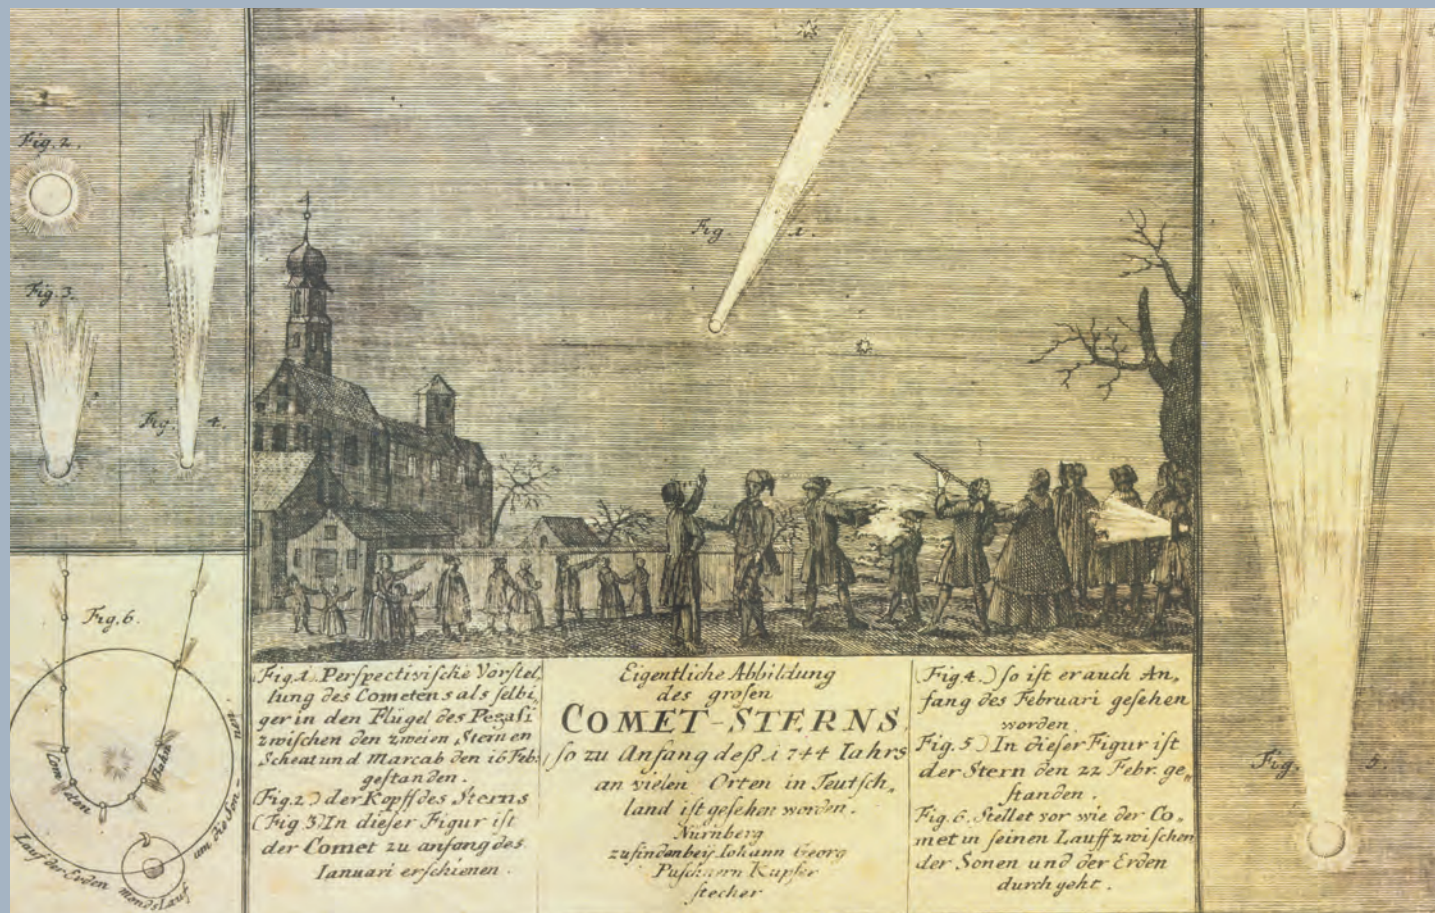 Fig. 2.
Fig. 3.
Fig. 4.
Fig. 1.
Fig. 5.
Fig. 6.
Com
den
Bahn
Lauf der Erden
um die Son„
nen
monds Lauf
Fig. 1. Perspectivische Vorstel„
lung des Cometens als selbi„
ger in den Flügel des Pegasi
zwischen den zweien Sternen
Scheat und Marcab den 16 Feb:
gestanden.
(Fig. 2.) der Kopff des Sterns
(Fig. 3) In dieser Figur ist
der Comet zu anfang des
Ianuari erschienen.
Eigentliche Abbildung
des grosen
COMET-STERNS
so zu Anfang deß 1744 Iahrs
an vielen Orten in Teutsch„
land ist gesehen worden.
Nürnberg
zufinden beÿ Iohann Georg
Puschnern Kupfer
stecher
(Fig. 4.) so ist er auch An„
fang des Februari gesehen
worden
Fig. 5.) In dieser Figur ist
der Stern den 22 Febr. ge„
standen.
Fig. 6. Stellet vor wie der Co„
met in seinen Lauff zwischen
der Sonen und der Erden
durch geht.